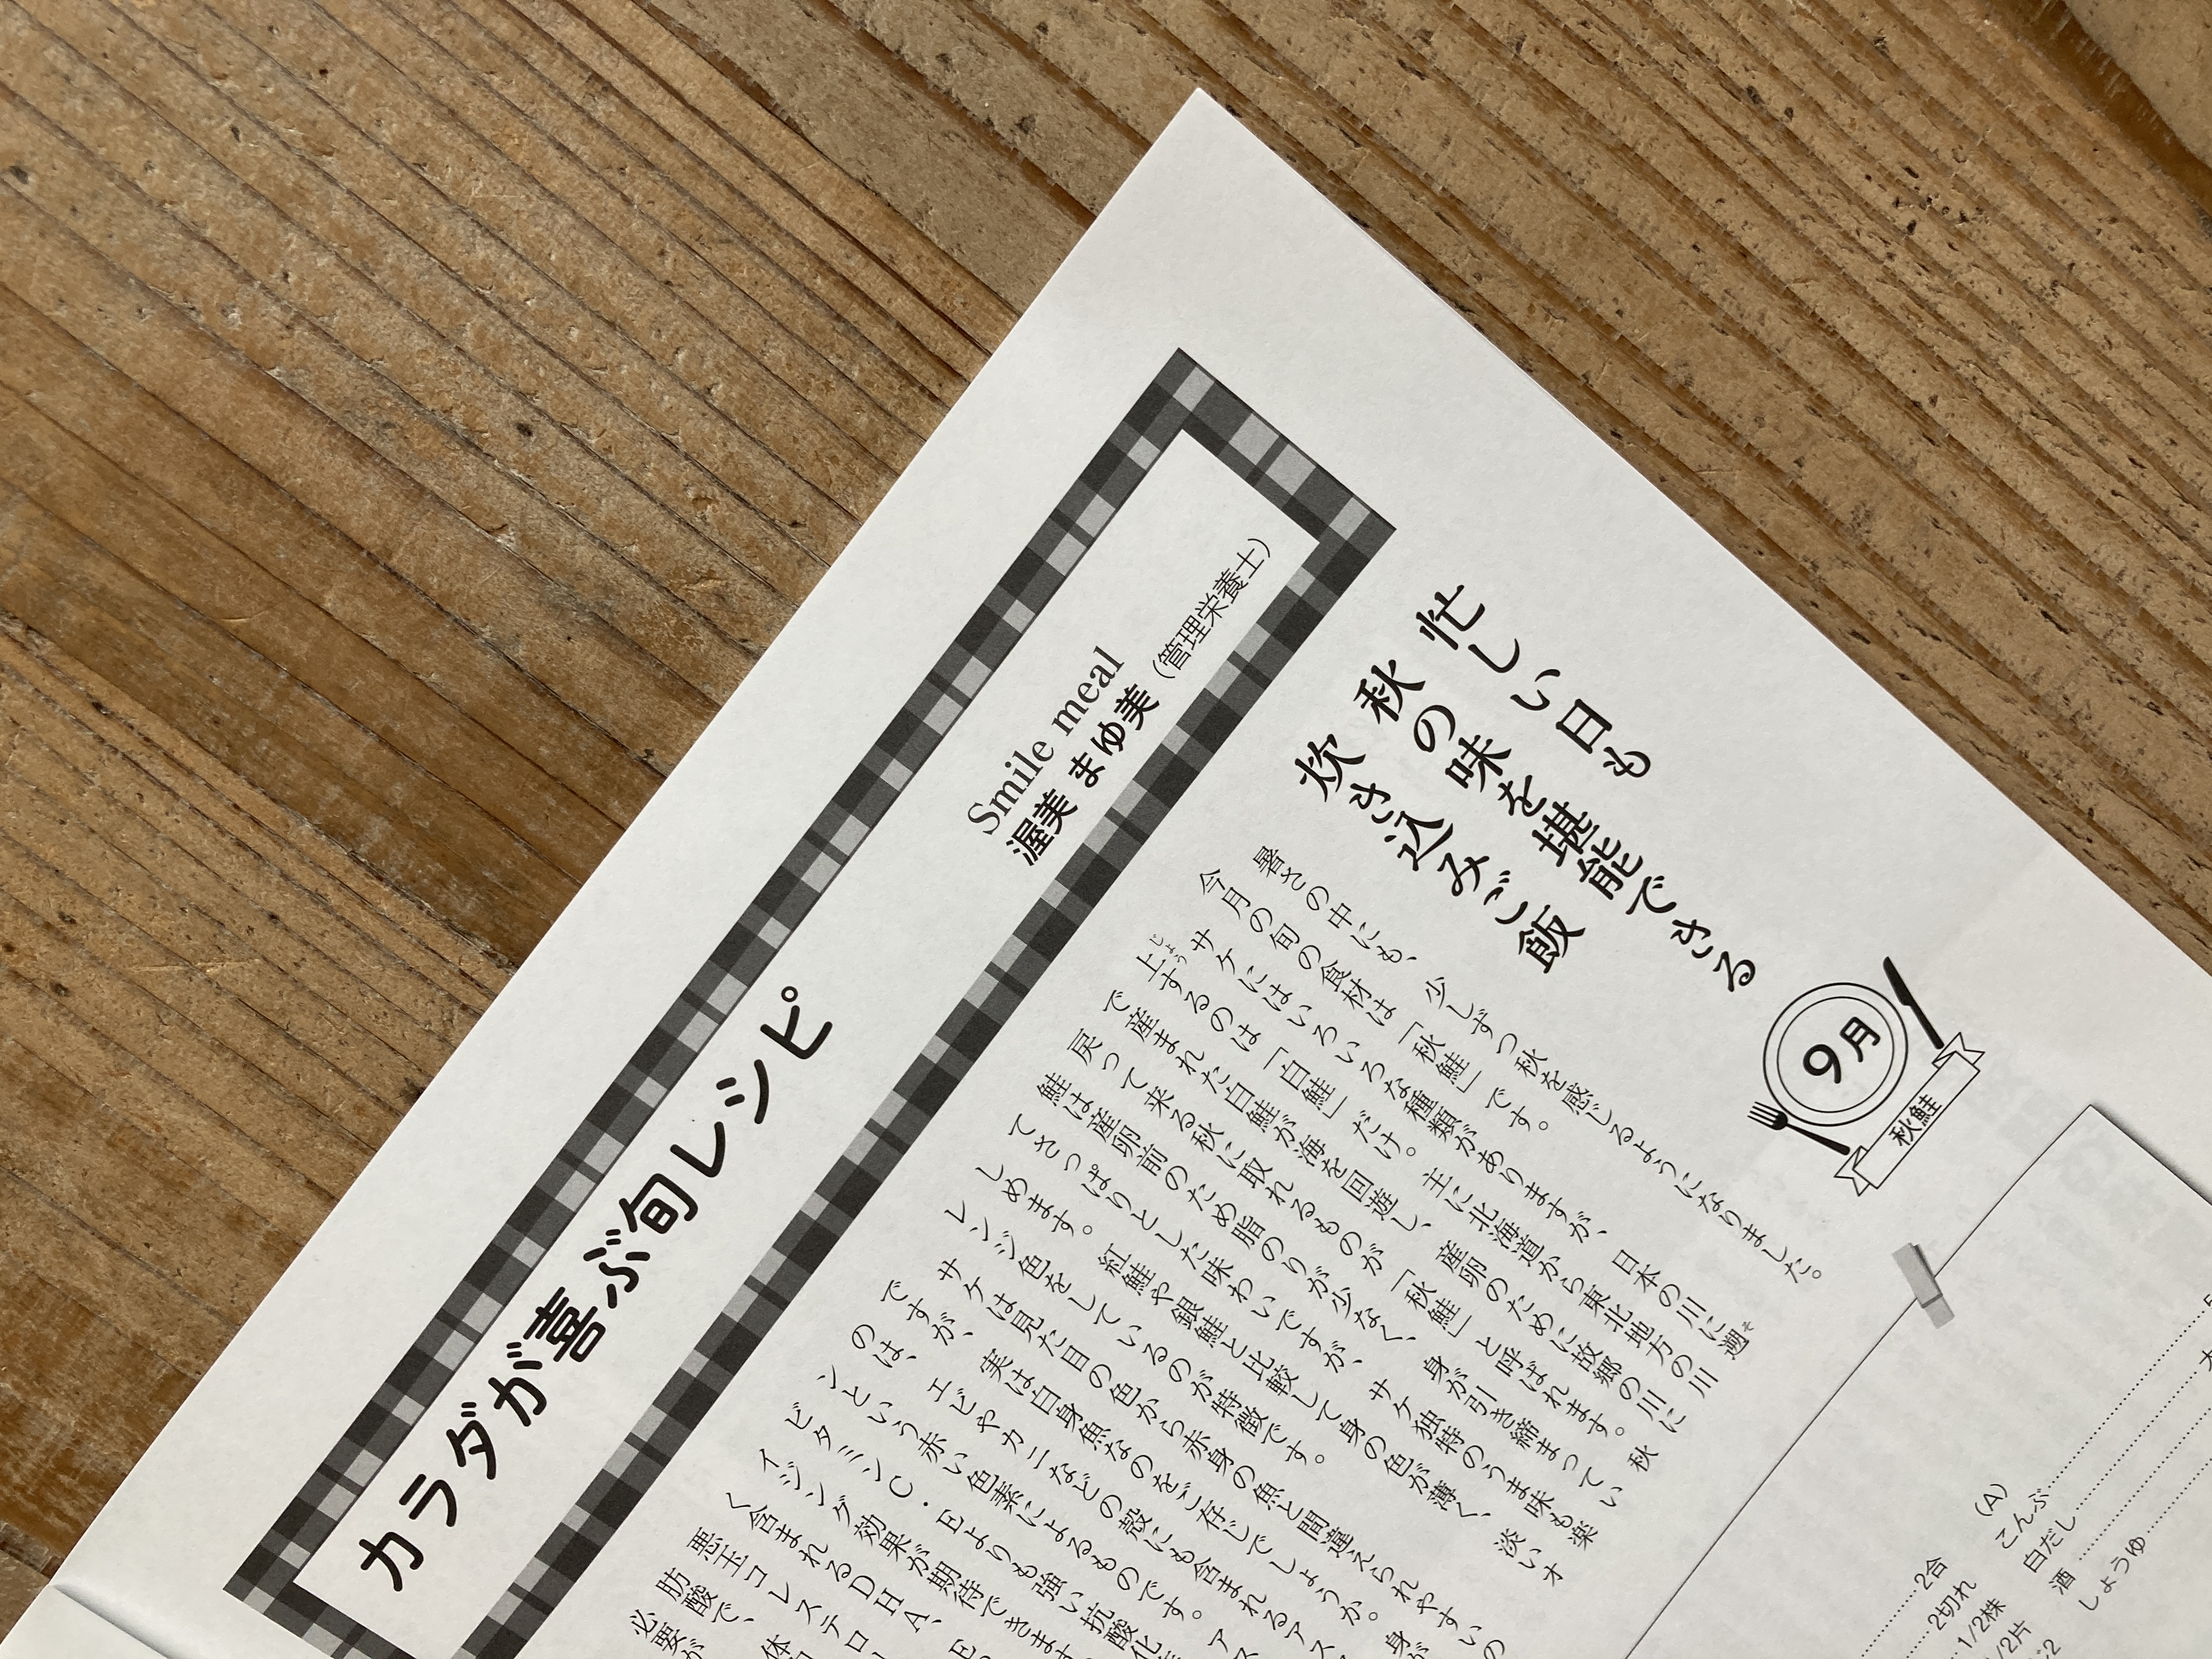 カラダが喜ぶ旬レシピ
Smile meal
渥美 まゆ美（管理栄養士）
9月
秋鮭
忙しい日も
秋の味を堪能できる
炊き込みご飯
暑さの中にも、少しずつ秋を感じるようになりました。
今月の旬の食材は「秋鮭」です。
サケにはいろいろな種類がありますが、日本の川に遡
上するのは「白鮭」だけ。主に北海道から東北地方の川
で産まれた白鮭が海を回遊し、産卵のために故郷の川に
戻って来る秋に取れるものが「秋鮭」と呼ばれます。秋
鮭は産卵前のため脂のりが少なく、身が引き締まってい
てさっぱりとした味わいですが、サケ独特のうま味も楽
しめます。紅鮭や銀鮭と比較して身の色が薄く、淡いオ
レンジ色をしているのが特徴です。
サケは見た目の色から赤身の魚と間違えられやすいの
ですが、実は白身魚なのをご存じでしょうか。身が
のは、エビやカニなどの殻にも含まれるアス
ンという赤い色素によるものです。アス
ビタミンC・Eよりも強い抗酸化
イジング効果が期待できます
く含まれるDHA、E
悪玉コレステロ
肪酸で、体
必要が
2合
2切れ
1/2株
/2片
(A)
こんぶ
白だし
酒
しょうゆ